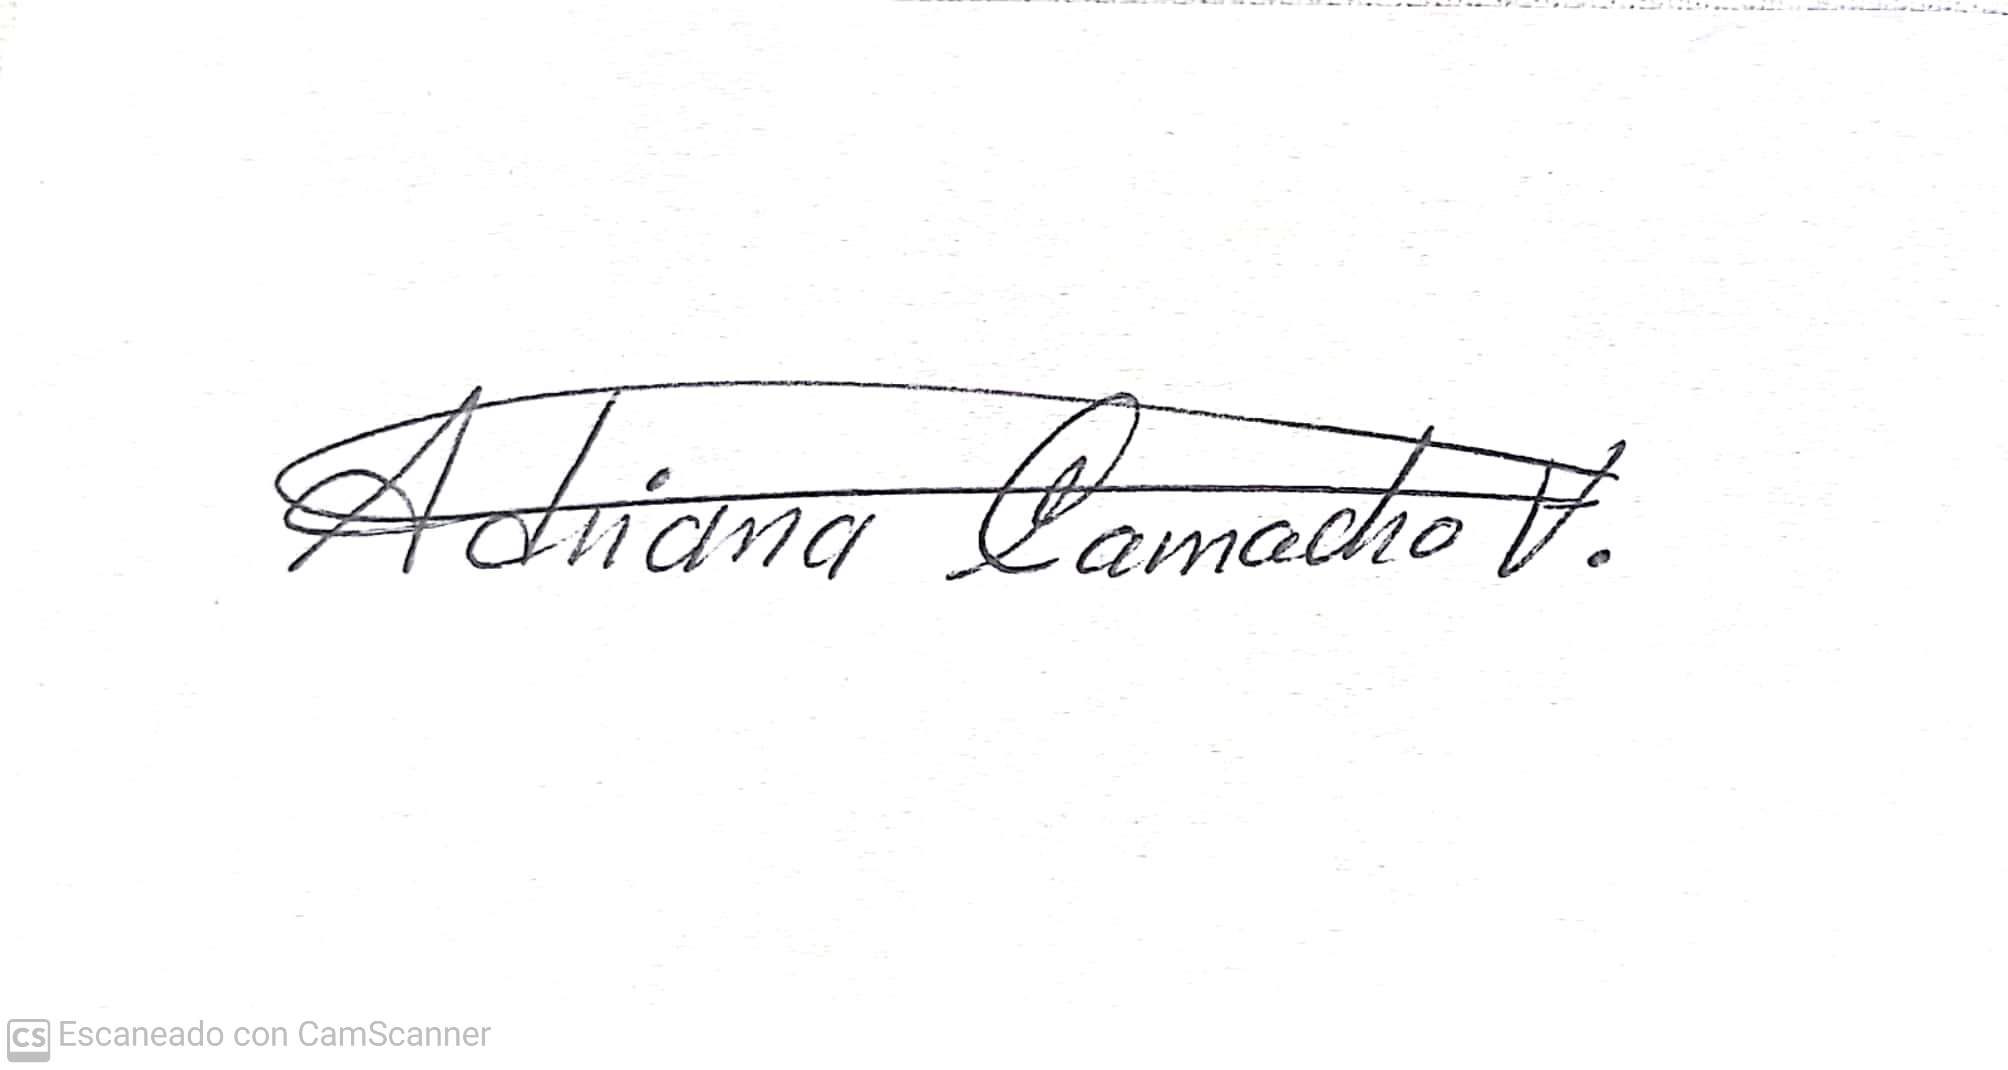 Adriana Camacho V.
CS Escaneado con CamScanner